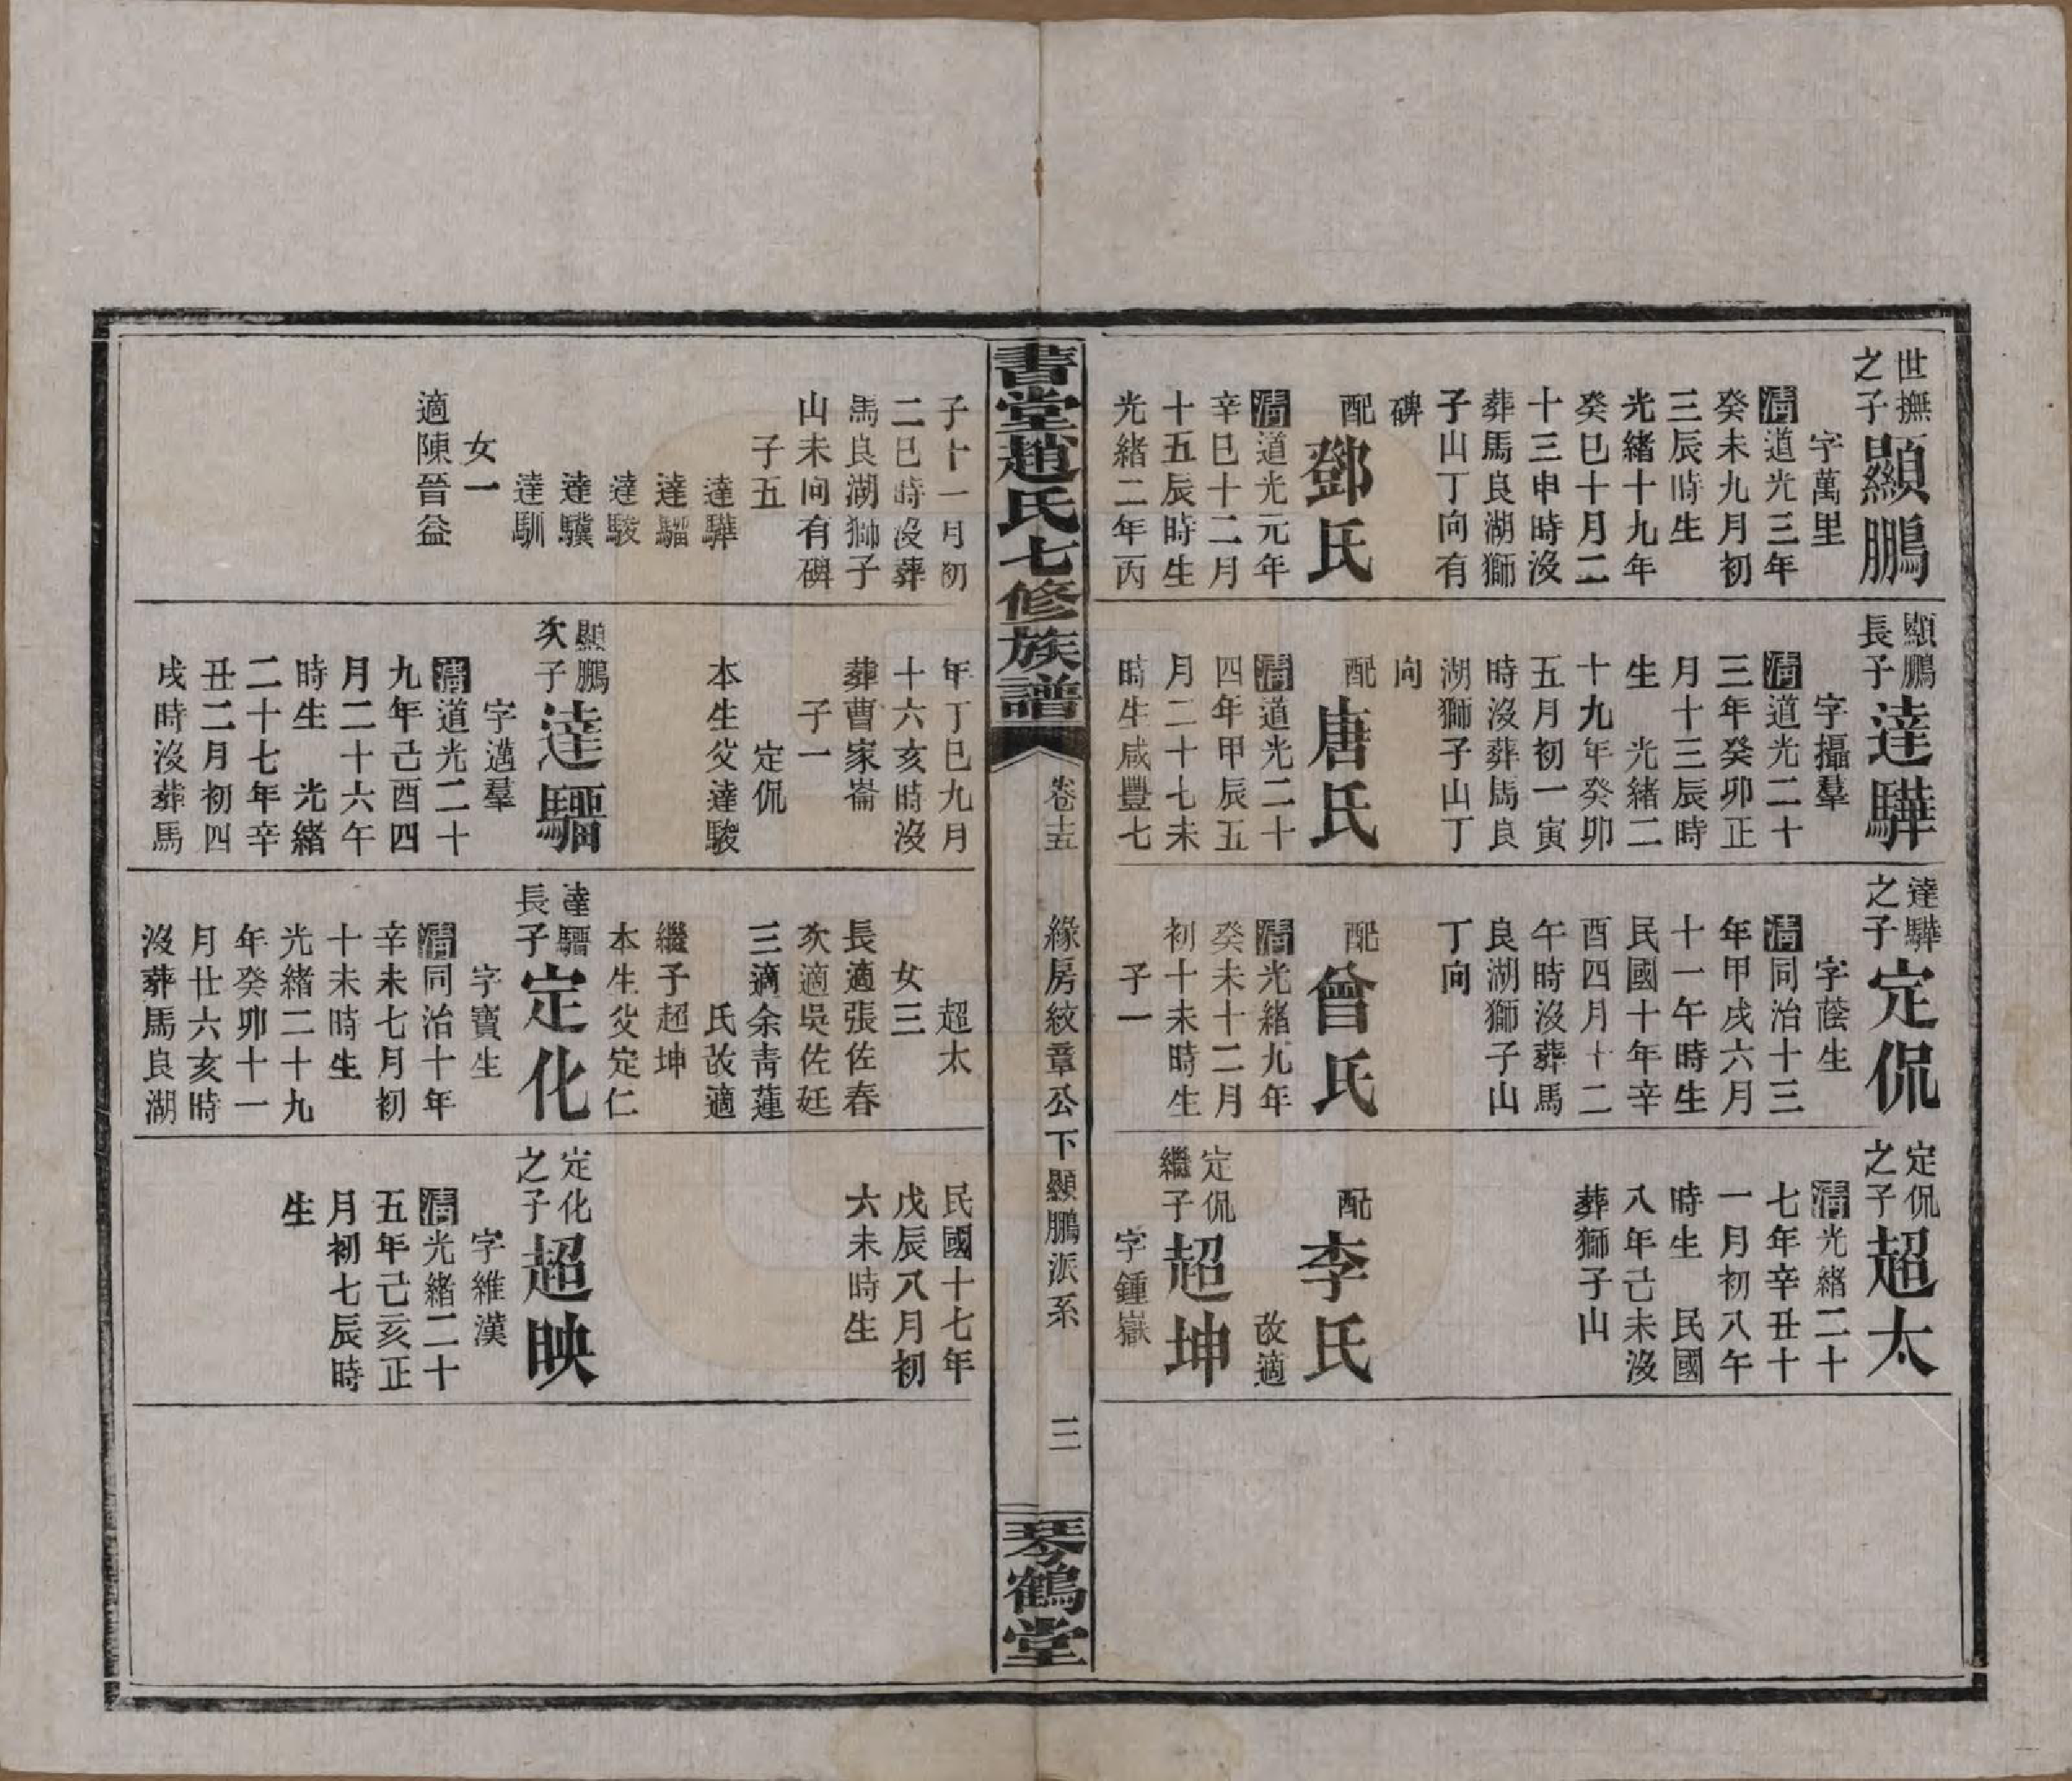 世撫
之子
顯鵬
字萬里
清道光三年
癸未九月初
三辰時生
光緒十九年
癸巳十月二
十三申時沒
葬馬良湖獅
子山丁向有
碑
配
鄧氏
清道光元年
辛巳十二月
十五辰時生
光緒二年丙
顯鵬
長子
達驊
字攝羣
清道光二十
三年癸卯正
月十三辰時
生　光緒二
十九年癸卯
五月初一寅
時沒葬馬良
湖獅子山丁
向
配
唐氏
清道光二十
四年甲辰五
月二十七未
時生咸豐七
達驊
之子
定侃
字蔭生
清同治十三
年甲戌六月
十一午時生
民國十年辛
酉四月十二
午時沒葬馬
良湖獅子山
丁向
配
曾氏
清光緒九年
癸未十二月
初十未時生
子一
定侃
之子
超太
清光緒二十
七年辛丑十
一月初八午
時生　民國
八年己未沒
葬獅子山
配
李氏
改適
定侃
繼子
超坤
字鍾嶽
書堂趙氏七修族譜
卷十五
緣房紋章公下顯鵬派系
三
琴鶴堂
子十一月初
二巳時沒葬
馬良湖獅子
山未向有碑
子五
達驊
達騮
達駿
達驥
達馴
女一
適陳晉益
年丁巳九月
十六亥時沒
葬曹家崙
子一
定侃
本生父達駿
顯鵬
次子
達騮
字邁羣
清道光二十
九年己酉四
月二十六午
時生　光緒
二十七年辛
丑二月初四
戌時沒葬馬
超太
女三
長適張佐春
次適吳佐廷
三適余靑蓮
氏改適
繼子超坤
本生父定仁
達騮
長子
定化
字寶生
清同治十年
辛未七月初
十未時生
光緒二十九
年癸卯十一
月廿六亥時
沒葬馬良湖
民國十七年
戊辰八月初
六未時生
定化
之子
超映
字維漢
清光緒二十
五年己亥正
月初七辰時
生